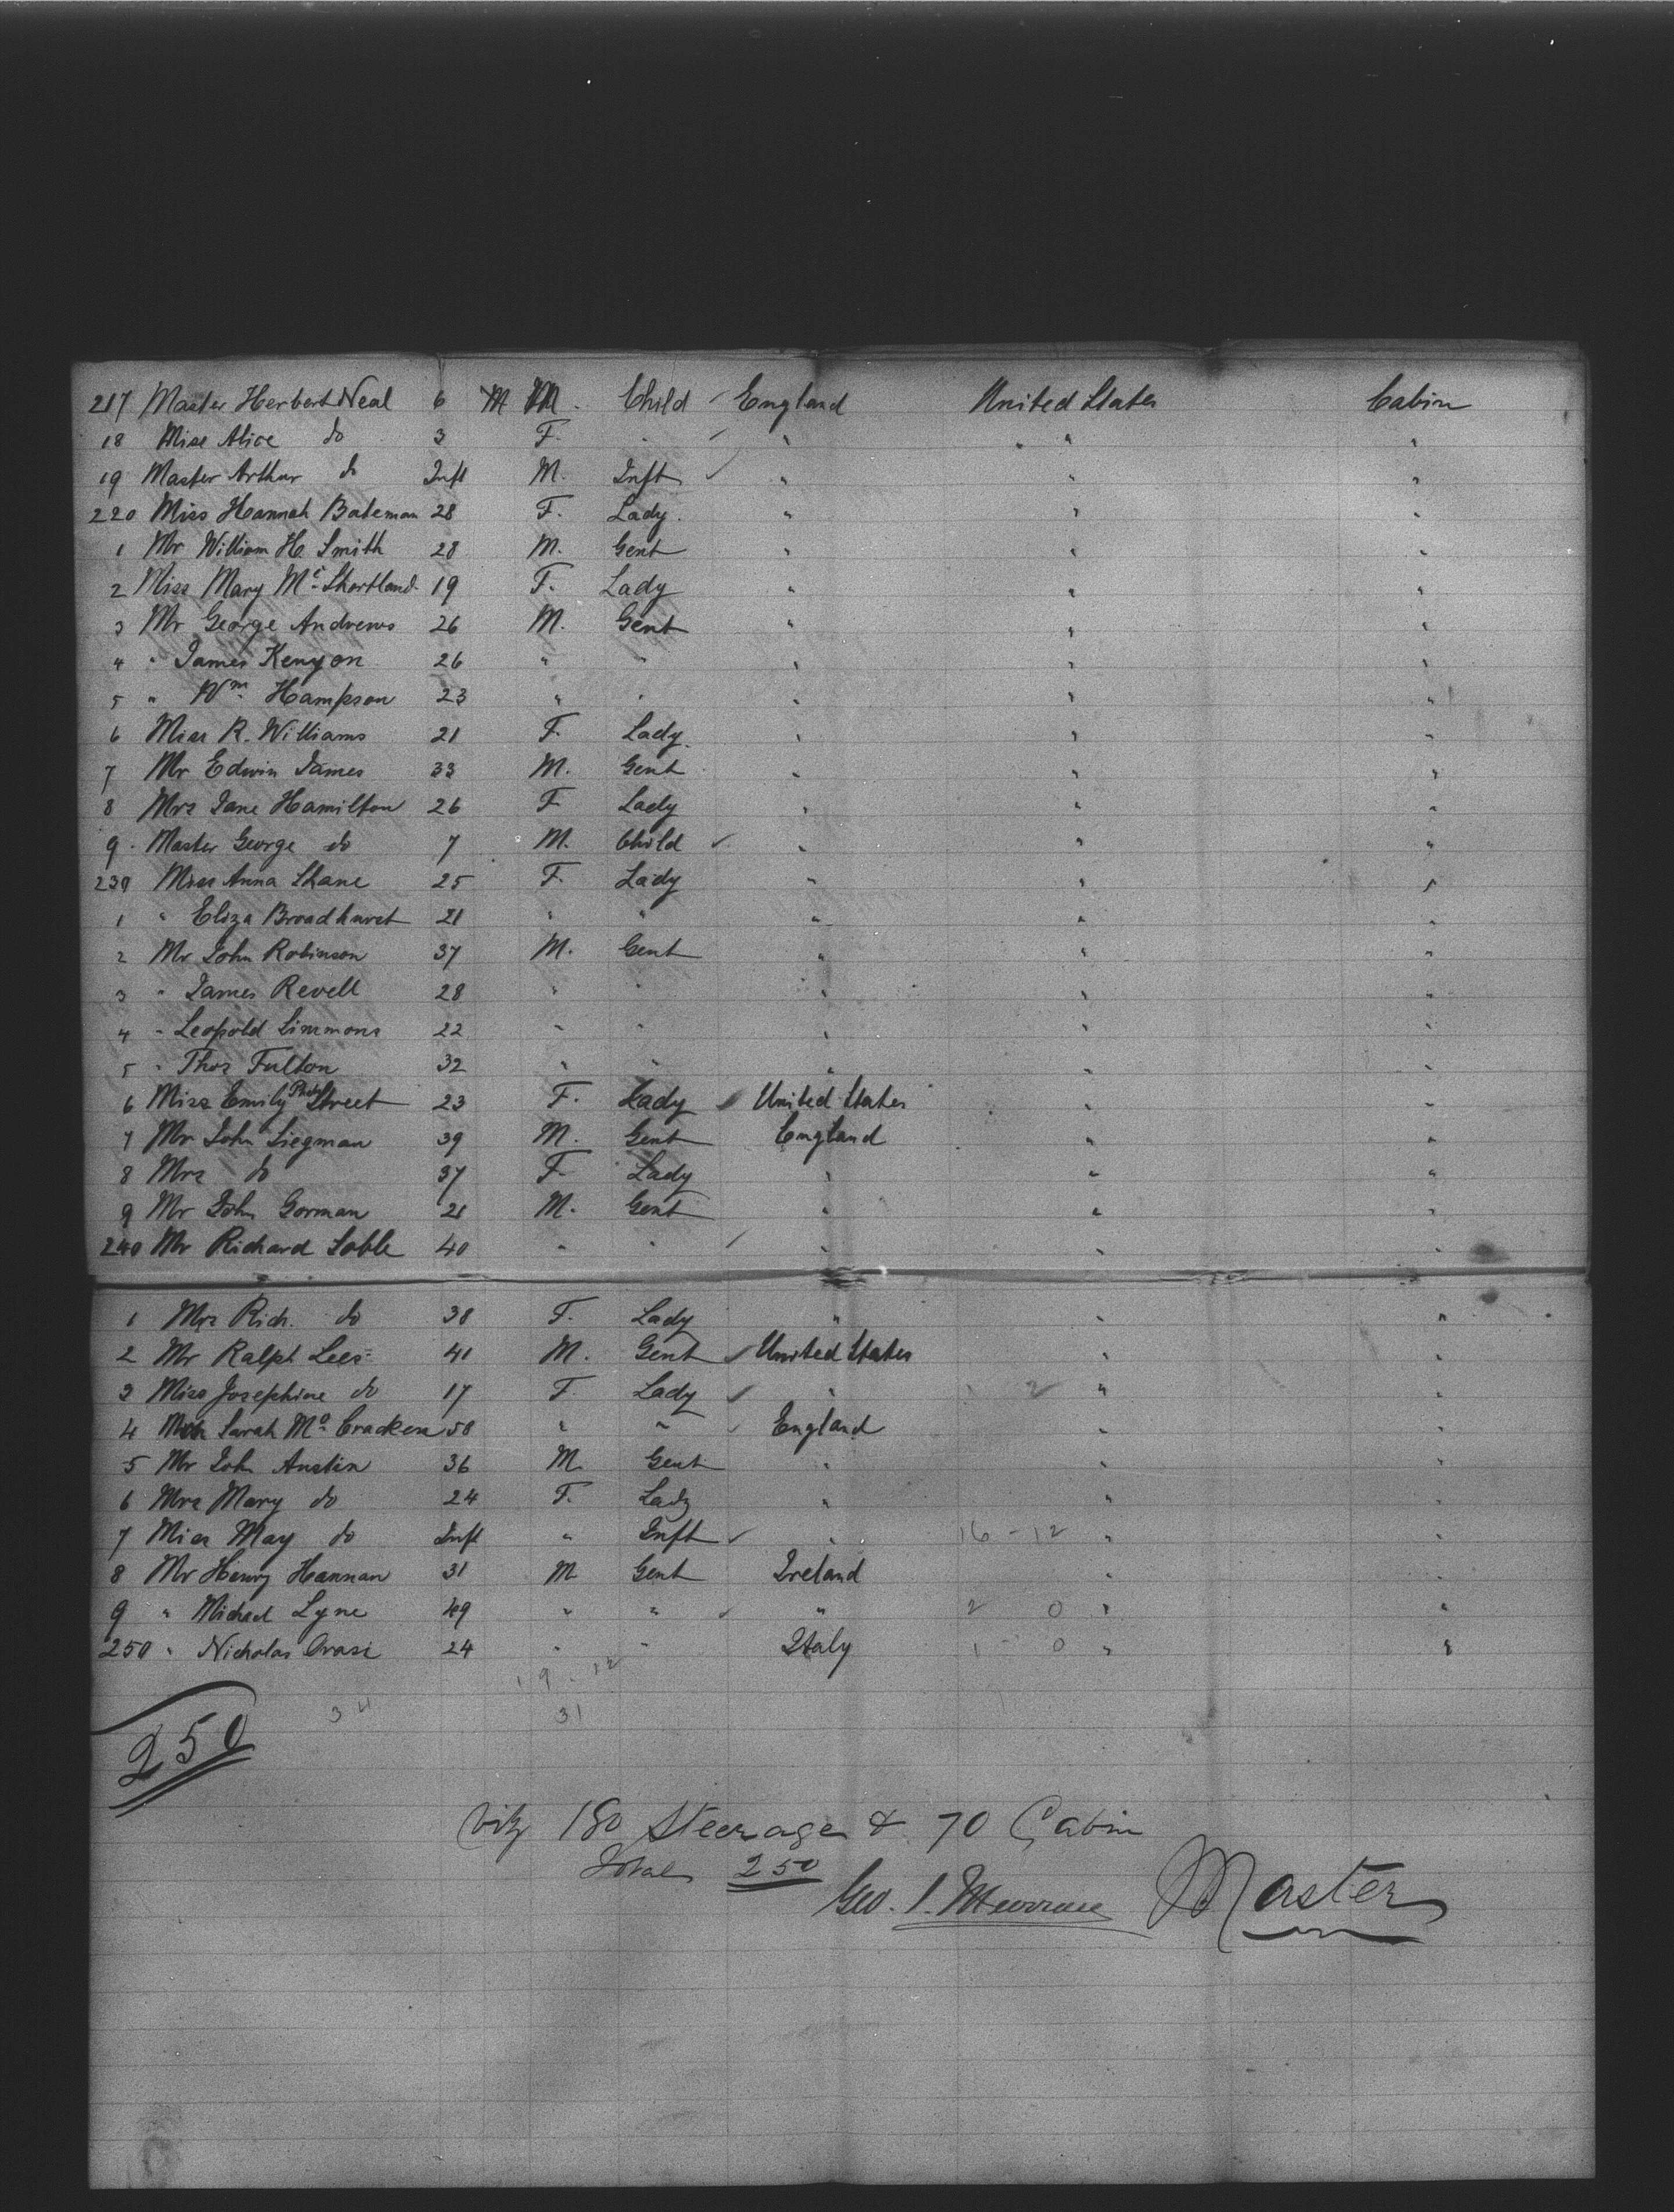 217 Master Herbert Neal 6 M M. Child England United States Cabin
18 Miss Alice do 3 F. " " " "
19 Master Arthur do Inft M. Inft " " "
220 Miss Hannah Bateman 28 F. Lady. " " "
1 Mr William H. Smith 28 M. Gent " " "
2 Miss Mary Mc Shortland 19 F. Lady " " "
3 Mr George Andrews 26 M. Gent " " "
4 " James Kenyon 26 " " " " "
5 " Wm Hampson 23 " " " " "
6 Miss R. Williams 21 F. Lady. " " "
7 Mr Edwin James 33 M. Gent " " "
8 Mrs Jane Hamilton 26 F Lady " " "
9 Master George do 7 M. Child " " "
230 Miss Anna Shane 25 F. Lady " " "
1 " Eliza Broadhurst 21 " " " " "
2 Mr John Robinson 37 M. Gent " " "
3 " James Revell 28 " " " " "
4 " Leopold Simmons 22 " " " " "
5 " Thos Fulton 32 " " " " "
6 Miss Emily Street 23 F. Lady United States " "
7 Mr John Siegman 39 M. Gent England " "
8 Mrs do 37 F. Lady " " "
9 Mr John Gorman 21 M. Gent " " "
240 Mr Richard Soble 40 " " " " "
1 Mrs Rich. do 38 F. Lady " " "
2 Mr Ralph Lees 41 M. Gent United States " "
3 Miss Josephine do 17 F. Lady " 2 " "
4 Sarah Mc Cracken 58 " " England " "
5 Mr John Austin 36 M Gent " " "
6 Mrs Mary do 24 F. Lady " " "
7 Miss May do Inft " Inft " 16-12 " "
8 Mr Henry Hannan 31 M Gent Ireland " "
9 " Michael Lyne 49 " " " 2 0 " "
250 " Nicholas 24 " " Italy 1 0 " "
19-12
34 31
250
viz 180 Steerage & 70 Cabin
Total 250
Geo. S. Murray Master